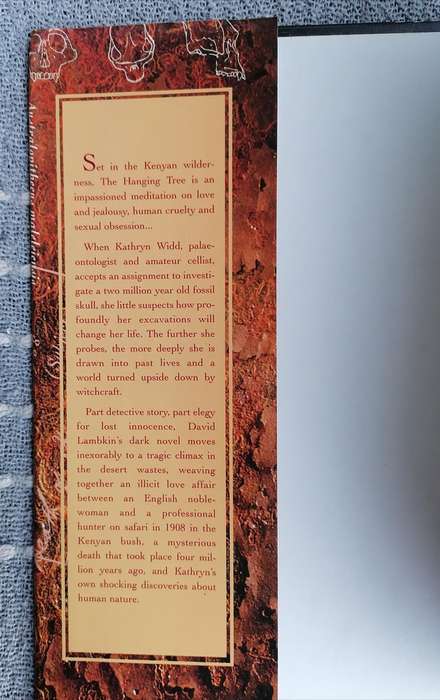 Set in the Kenyan wilder-
ness, The Hanging Tree is an
impassioned meditation on love
and jealousy, human cruelty and
sexual obsession...
When Kathryn Widd, palae-
ontologist and amateur cellist,
accepts an assignment to investi-
gate a two million year old fossil
skull, she little suspects how pro-
foundly her excavations will
change her life. The further she
probes, the more deeply she is
drawn into past lives and a
world turned upside down by
witchcraft.
Part detective story, part elegy
for lost innocence, David
Lambkin's dark novel moves
inexorably to a tragic climax in
the desert wastes, weaving
together an illicit love affair
between an English noble-
woman and a professional
hunter on safari in 1908 in the
Kenyan bush, a mysterious
death that took place four mil-
lion years ago, and Kathryn's
own shocking discoveries about
human nature.